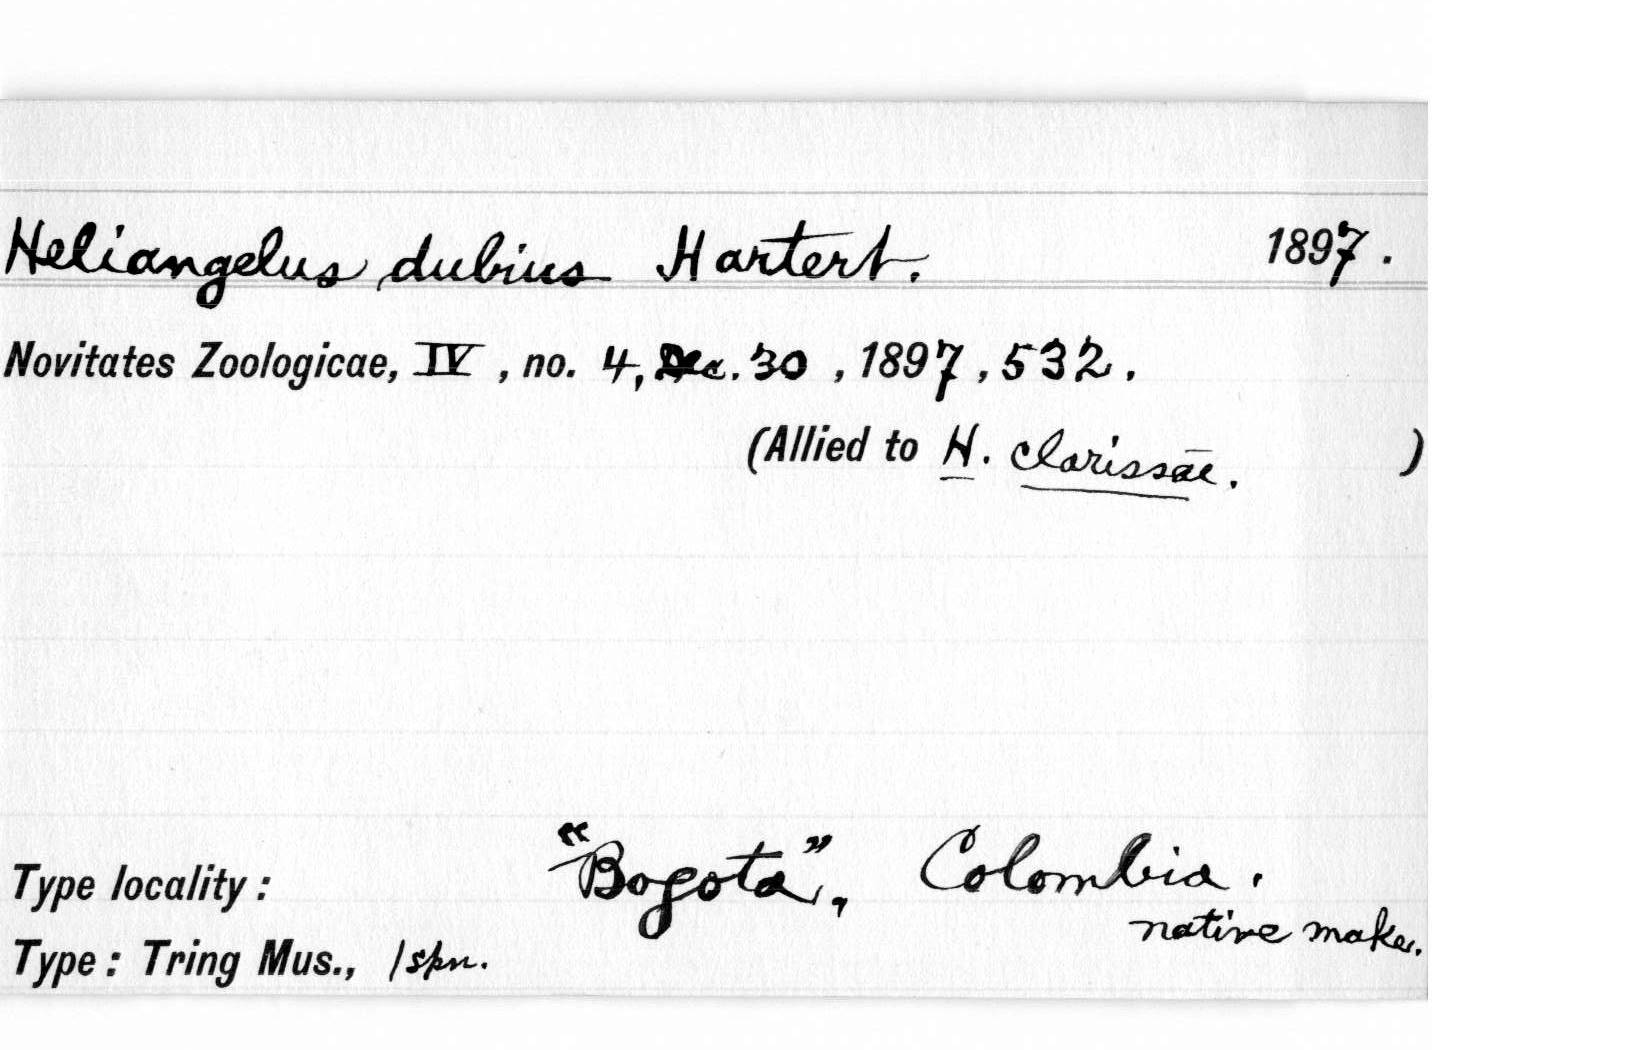 Heliangelus dubius Hartert. 1897.
Novitates Zoologicae, IV, no. 4, Dec. 30, 1897, 532.
(Allied to H. clarissae. )
Type locality: "Bogota", Colombia.
native make.
Type: Tring Mus., 1 spn.